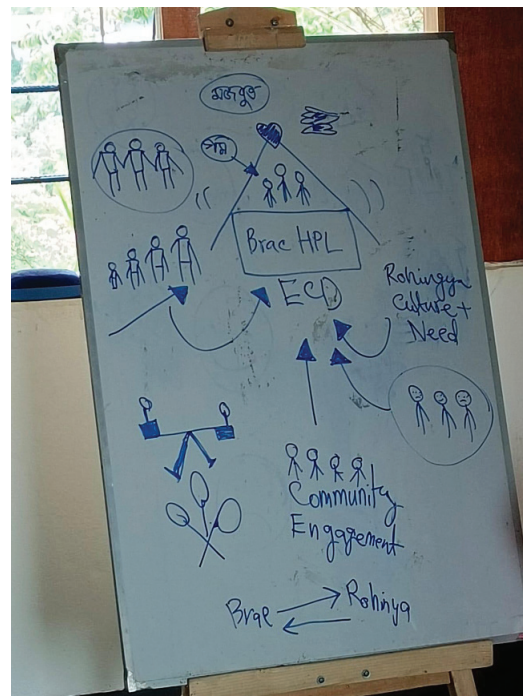 মজবুত
Brac HPL
ECD
Rohingya
Culture +
Need
Community
Engagement
Brac
Rohinya